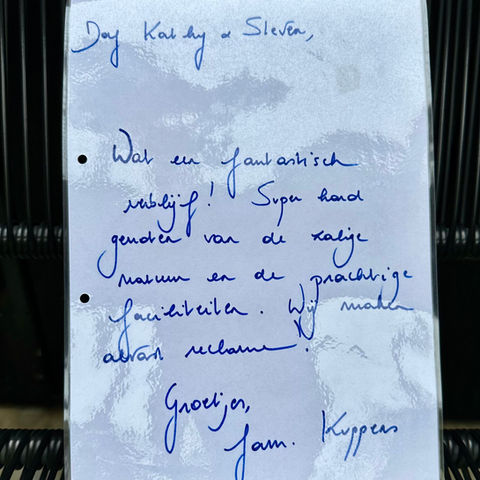 Dag Kathy & Steven,
Wat een fantastisch
verblijf! Super hard
genoten van de zalige
natuur en de prachtige
faciliteiten. Wij maken
alvast reclame!
Groetjes,
Fam. Kuppens